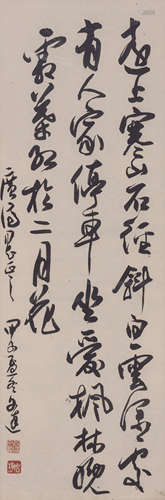 遠上寒山石徑斜白雲深處
有人家停車坐愛楓林晚
霜葉紅於二月花
正之 甲子